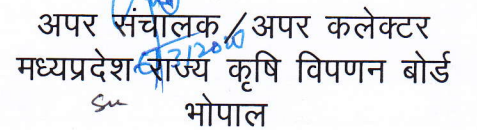 अपर संचालक/अपर कलेक्टर
मध्यप्रदेश राज्य कृषि विपणन बोर्ड
भोपाल